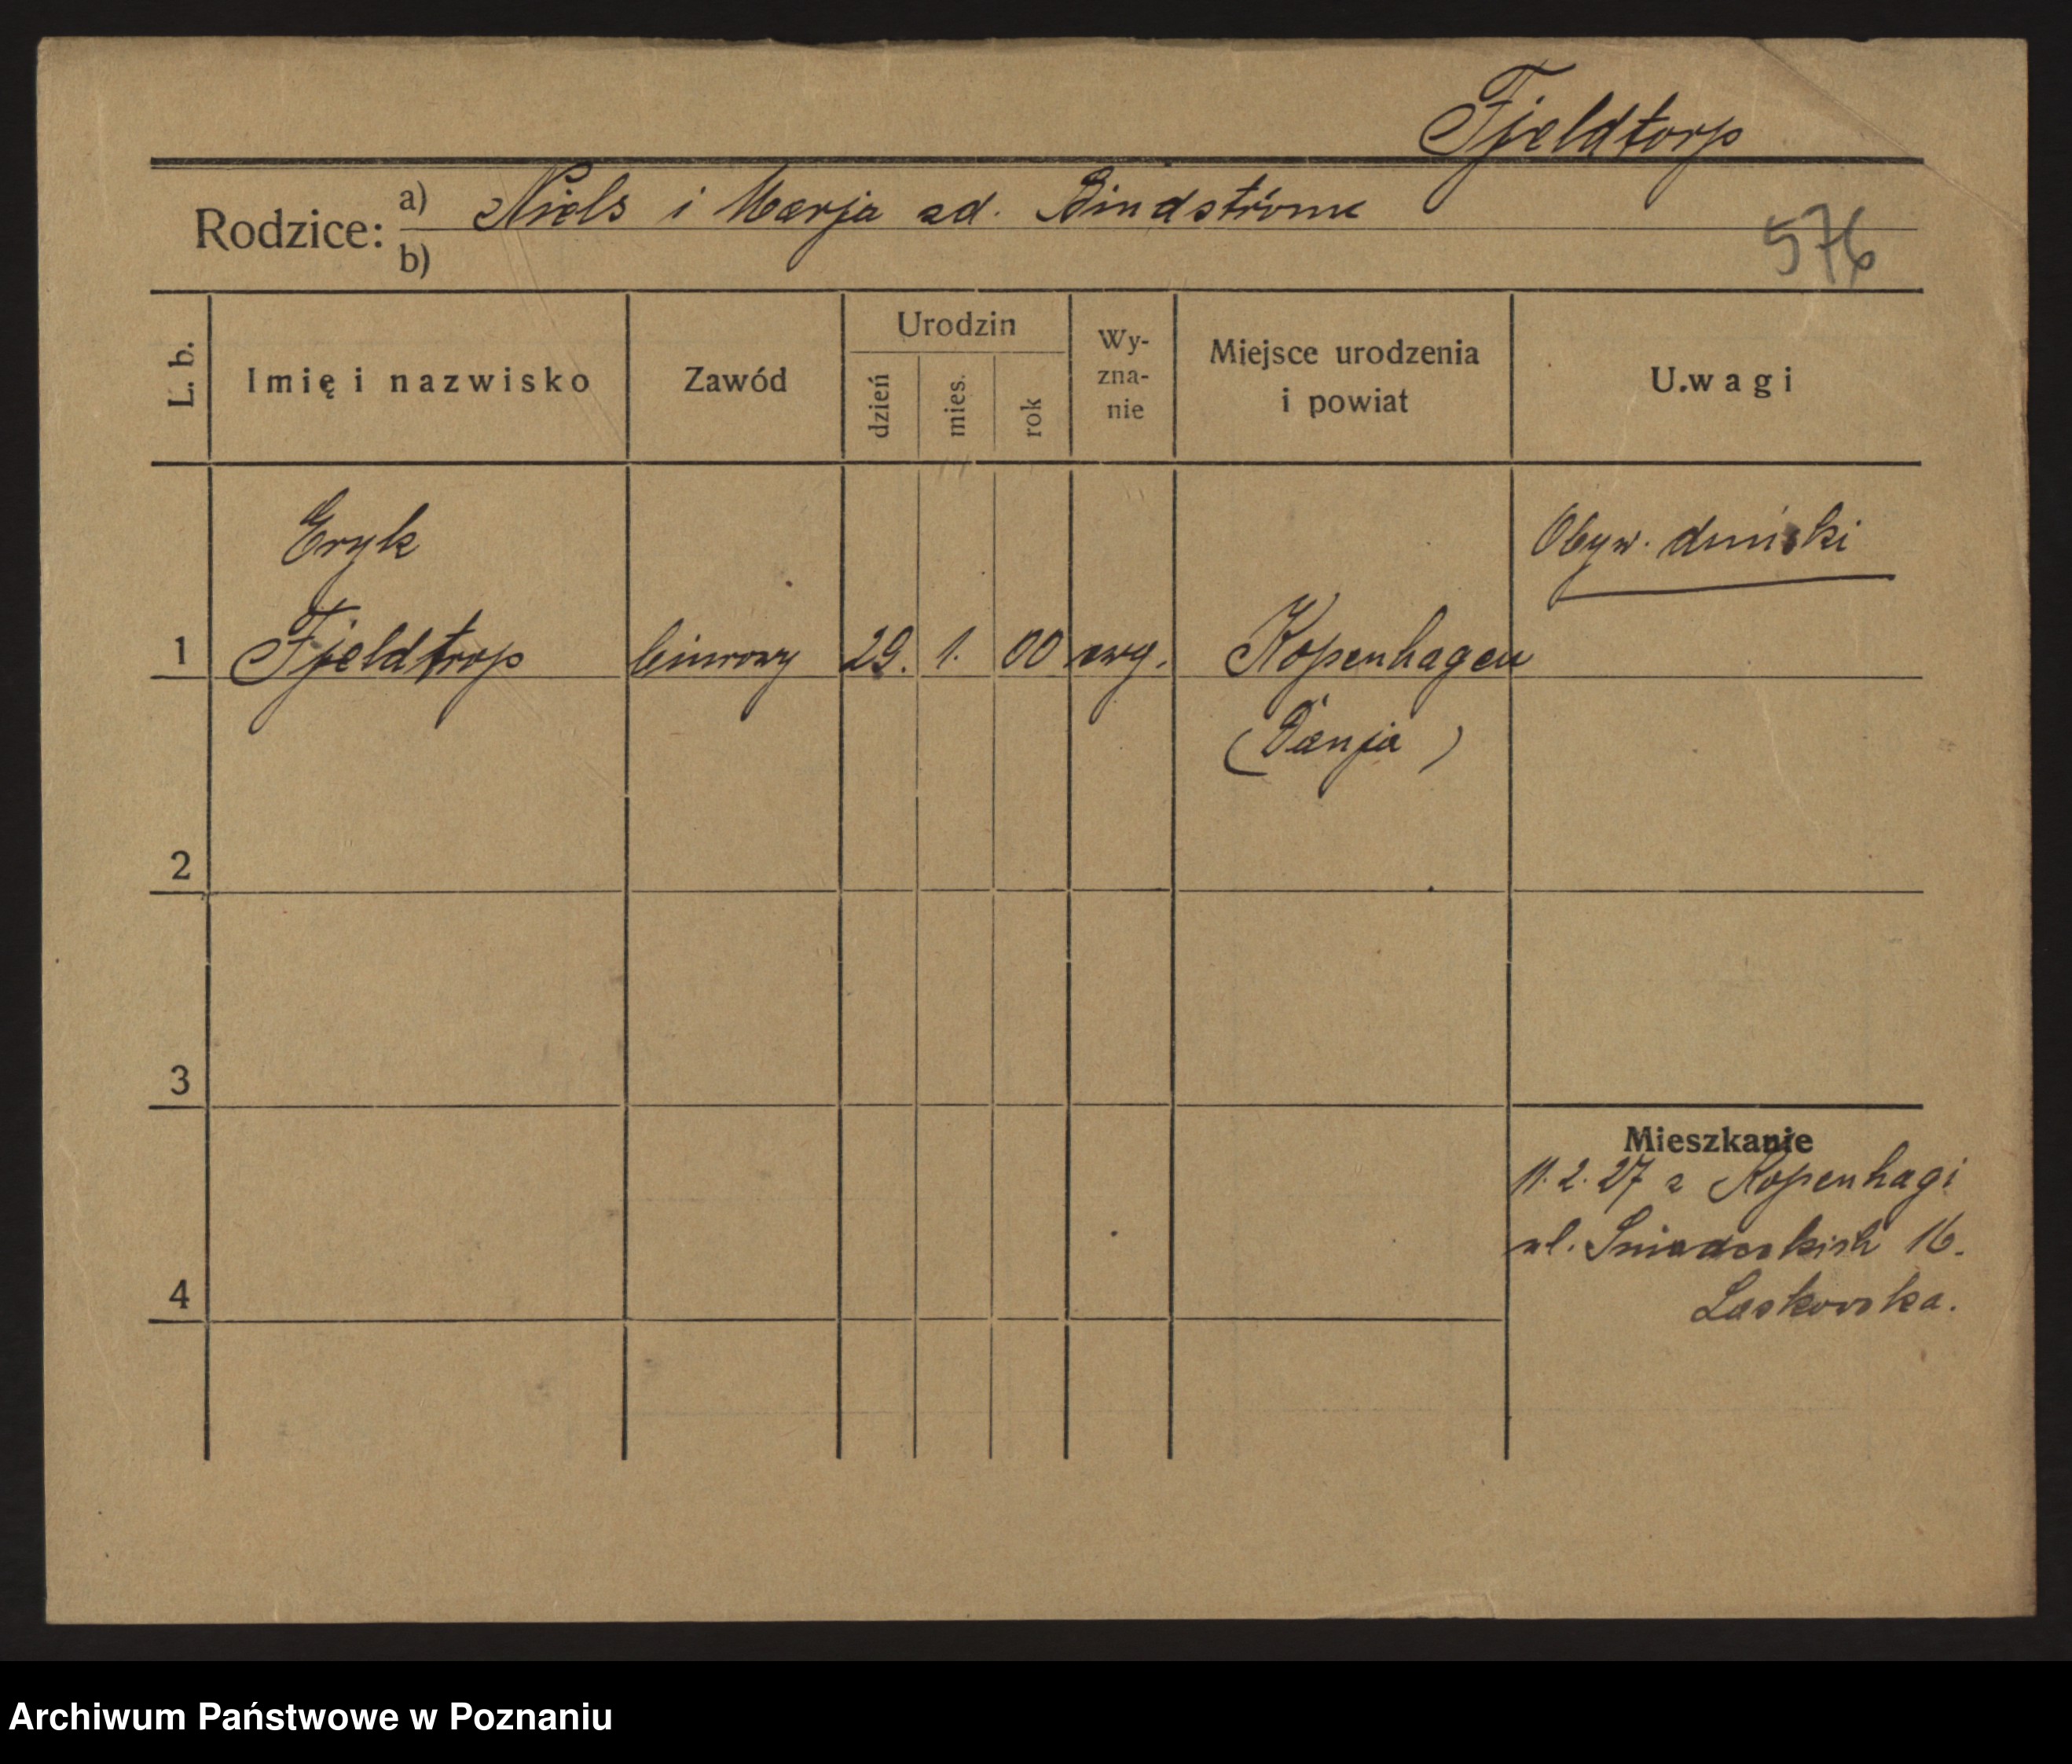 Fjeldtorp
Rodzice: a) Niels i Marja zd. Bindströme
b)
576
L. b.
Imię i nazwisko
Zawód
Urodzin
dzień
mies.
rok
Wy-
zna-
nie
Miejsce urodzenia
i powiat
U.wagi
Eryk
Obyw. duński
1 Fjeldtrop biurowy 29. 1. 00 ewg. Kopenhagen
(Danja)
2
3
Mieszkanie
11.2.27 z Kopenhagi
ul. Sniadeckich 16.
4
Laskowska.
Archiwum Państwowe w Poznaniu